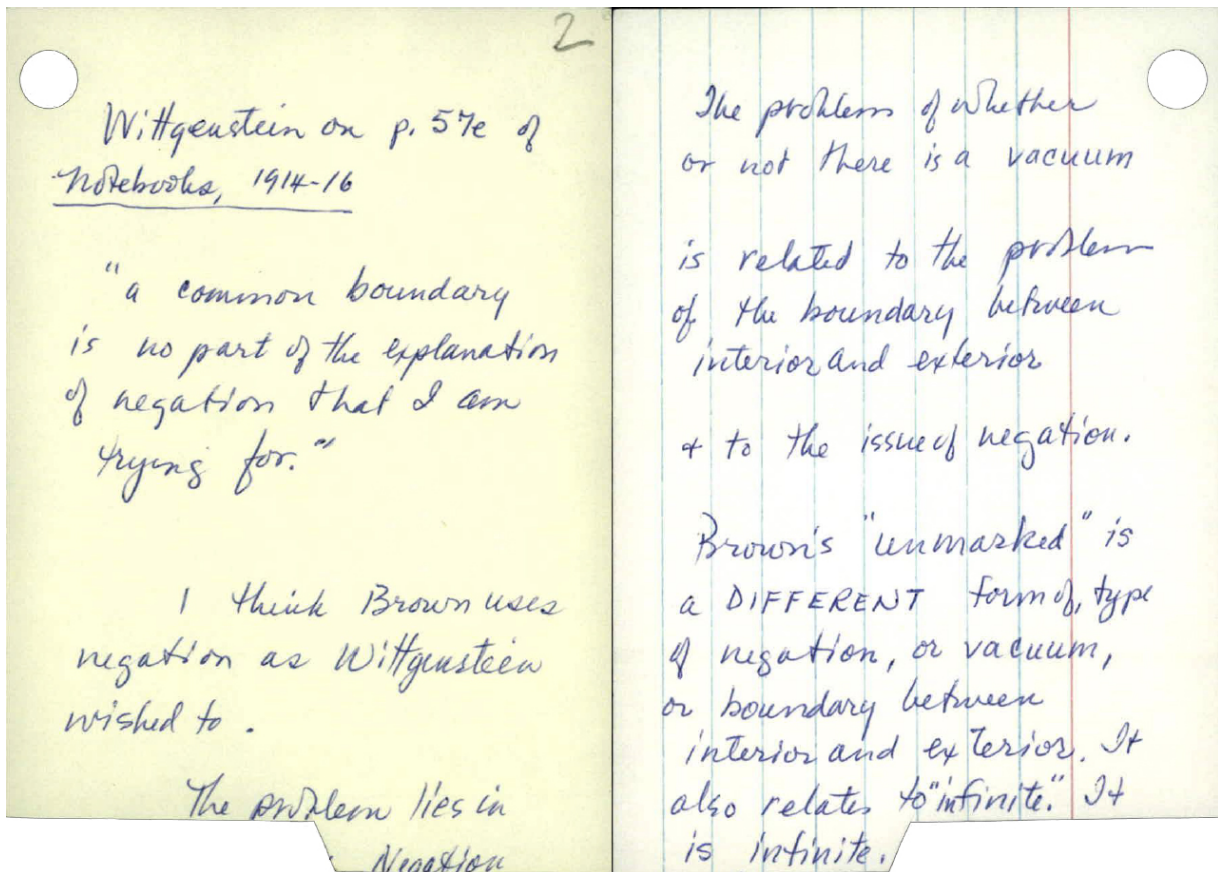 2
Wittgenstein on p. 57e of
Notebooks, 1914-16
"a common boundary
is no part of the explanation
of negation that I am
trying for."
I think Brown uses
negation as Wittgenstein
wished to.
The problem lies in
Negation
The problem of whether
or not there is a vacuum
is related to the problem
of the boundary between
interior and exterior
+ to the issue of negation.
Brown's "unmarked" is
a DIFFERENT form of, type
of negation, or vacuum,
or boundary between
interior and exterior. It
also relates to "infinite." It
is infinite.